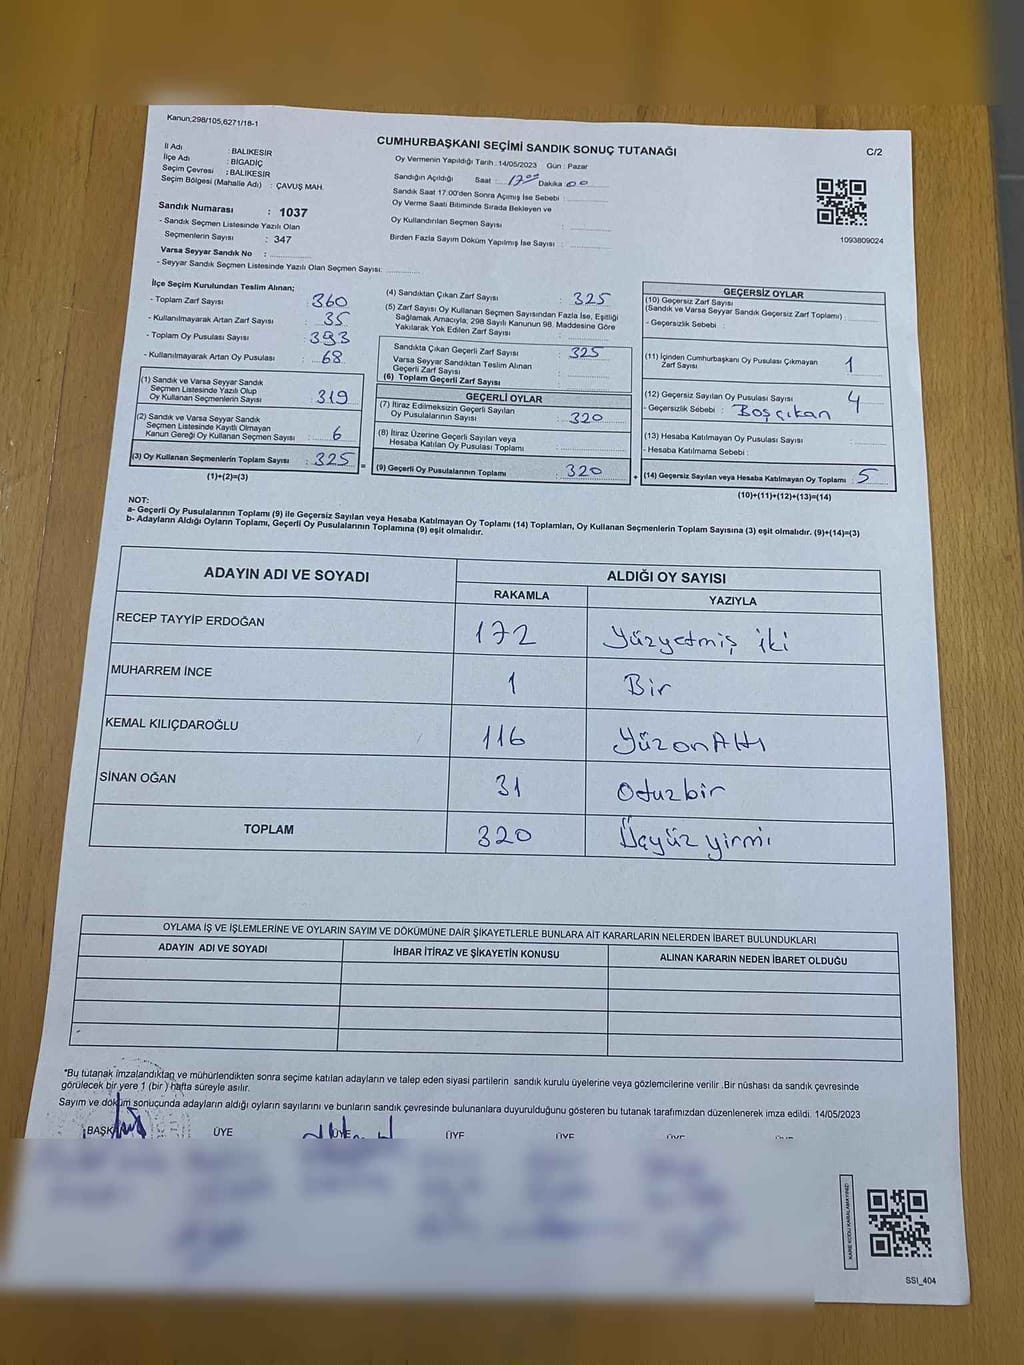 Kanun;298/105,6271/18-1
CUMHURBAŞKANI SEÇİMİ SANDIK SONUÇ TUTANAĞI
C/2
İl Adı : BALIKESİR
İlçe Adı : BİGADİÇ
Seçim Çevresi : BALIKESİR
Seçim Bölgesi (Mahalle Adı) : ÇAVUŞ MAH.
Sandık Numarası : 1037
- Sandık Seçmen Listesinde Yazılı Olan
Seçmenlerin Sayısı : 347
Varsa Seyyar Sandık No :
- Seyyar Sandık Seçmen Listesinde Yazılı Olan Seçmen Sayısı:
Oy Vermenin Yapıldığı Tarih : 14/05/2023 Gün : Pazar
Sandığın Açıldığı Saat : 17:00 Dakika : 00
Sandık Saat 17:00'den Sonra Açımış İse Sebebi :
Oy Verme Saati Bitiminde Sırada Bekleyen ve
Oy Kullandırılan Seçmen Sayısı :
Birden Fazla Sayım Döküm Yapılmış İse Sayısı :
1093809024
İlçe Seçim Kurulundan Teslim Alınan;
- Toplam Zarf Sayısı : 360
- Kullanılmayarak Artan Zarf Sayısı : 35
- Toplam Oy Pusulası Sayısı : 393
- Kullanılmayarak Artan Oy Pusulası : 68
(1) Sandık ve Varsa Seyyar Sandık
Seçmen Listesinde Yazılı Olup
Oy Kullanan Seçmenlerin Sayısı : 319
(2) Sandık ve Varsa Seyyar Sandık
Seçmen Listesinde Kayıtlı Olmayan
Kanun Gereği Oy Kullanan Seçmen Sayısı : 6
(3) Oy Kullanan Seçmenlerin Toplam Sayısı : 325
(1)+(2)=(3)
(4) Sandıktan Çıkan Zarf Sayısı : 325
(5) Zarf Sayısı Oy Kullanan Seçmen Sayısından Fazla İse, Eşitliği
Sağlamak Amacıyla, 298 Sayılı Kanunun 98. Maddesine Göre
Yakılarak Yok Edilen Zarf Sayısı :
Sandıkta Çıkan Geçerli Zarf Sayısı : 325
Varsa Seyyar Sandıktan Teslim Alınan
Geçerli Zarf Sayısı :
(6) Toplam Geçerli Zarf Sayısı :
GEÇERLİ OYLAR
(7) İtiraz Edilmeksizin Geçerli Sayılan
Oy Pusulalarının Sayısı : 320
(8) İtiraz Üzerine Geçerli Sayılan veya
Hesaba Katılan Oy Pusulası Toplamı :
= (9) Geçerli Oy Pusulalarının Toplamı : 320
GEÇERSİZ OYLAR
(10) Geçersiz Zarf Sayısı
(Sandık ve Varsa Seyyar Sandık Geçersiz Zarf Toplamı) :
- Geçersizlik Sebebi :
(11) İçinden Cumhurbaşkanı Oy Pusulası Çıkmayan
Zarf Sayısı : 1
(12) Geçersiz Sayılan Oy Pusulası Sayısı : 4
- Geçersizlik Sebebi : Boşçıkan
(13) Hesaba Katılmayan Oy Pusulası Sayısı :
- Hesaba Katılmama Sebebi :
+ (14) Geçersiz Sayılan veya Hesaba Katılmayan Oy Toplamı : 5
(10)+(11)+(12)+(13)=(14)
NOT:
a- Geçerli Oy Pusulalarının Toplamı (9) ile Geçersiz Sayılan veya Hesaba Katılmayan Oy Toplamı (14) Toplamları, Oy Kullanan Seçmenlerin Toplam Sayısına (3) eşit olmalıdır. (9)+(14)=(3)
b- Adayların Aldığı Oyların Toplamı, Geçerli Oy Pusulalarının Toplamına (9) eşit olmalıdır.
ADAYIN ADI VE SOYADI
ALDIĞI OY SAYISI
RAKAMLA YAZIYLA
RECEP TAYYİP ERDOĞAN 172 Yüzyetmiş iki
MUHARREM İNCE 1 Bir
KEMAL KILIÇDAROĞLU 116 YüzonAltı
SİNAN OĞAN 31 Otuzbir
TOPLAM 320 Üçyüz yirmi
OYLAMA İŞ VE İŞLEMLERİNE VE OYLARIN SAYIM VE DÖKÜMÜNE DAİR ŞİKAYETLERLE BUNLARA AİT KARARLARIN NELERDEN İBARET BULUNDUKLARI
ADAYIN ADI VE SOYADI İHBAR İTİRAZ VE ŞİKAYETİN KONUSU ALINAN KARARIN NEDEN İBARET OLDUĞU
"Bu tutanak imzalandıktan ve mühürlendikten sonra seçime katılan adayların ve talep eden siyasi partilerin sandık kurulu üyelerine veya gözlemcilerine verilir .Bir nüshası da sandık çevresinde
görülecek bir yere 1 (bir ) hafta süreyle asılır.
Sayım ve döküm sonucunda adayların aldığı oyların sayılarını ve bunların sandık çevresinde bulunanlara duyurulduğunu gösteren bu tutanak tarafımızdan düzenlenerek imza edildi. 14/05/2023
BAŞKAN ÜYE ÜYE ÜYE ÜYE ÜYE
KARE KODU KARALAMAYINIZ!
SSI_404